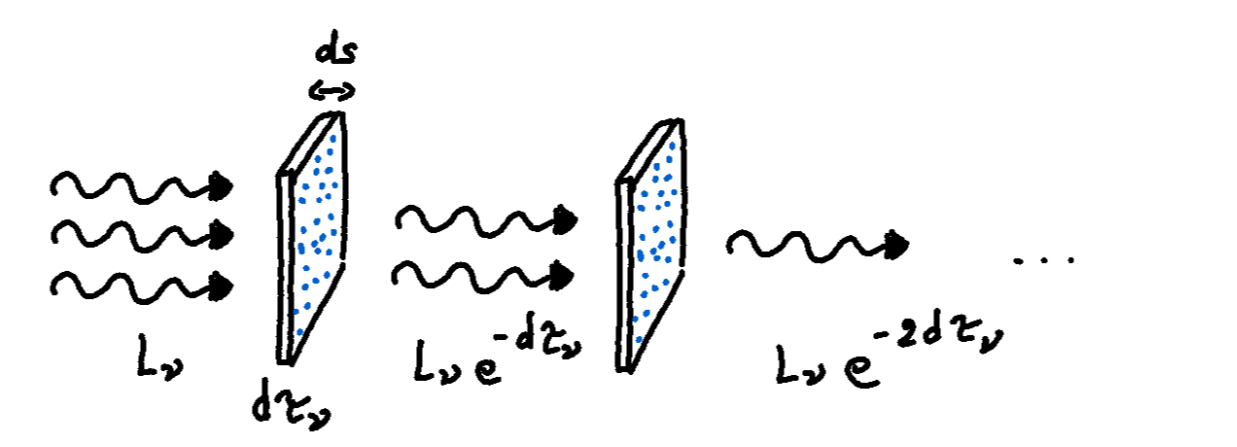 ds
L_ν
dτ_ν
L_ν e^{-dτ_ν}
L_ν e^{-2dτ_ν}
...